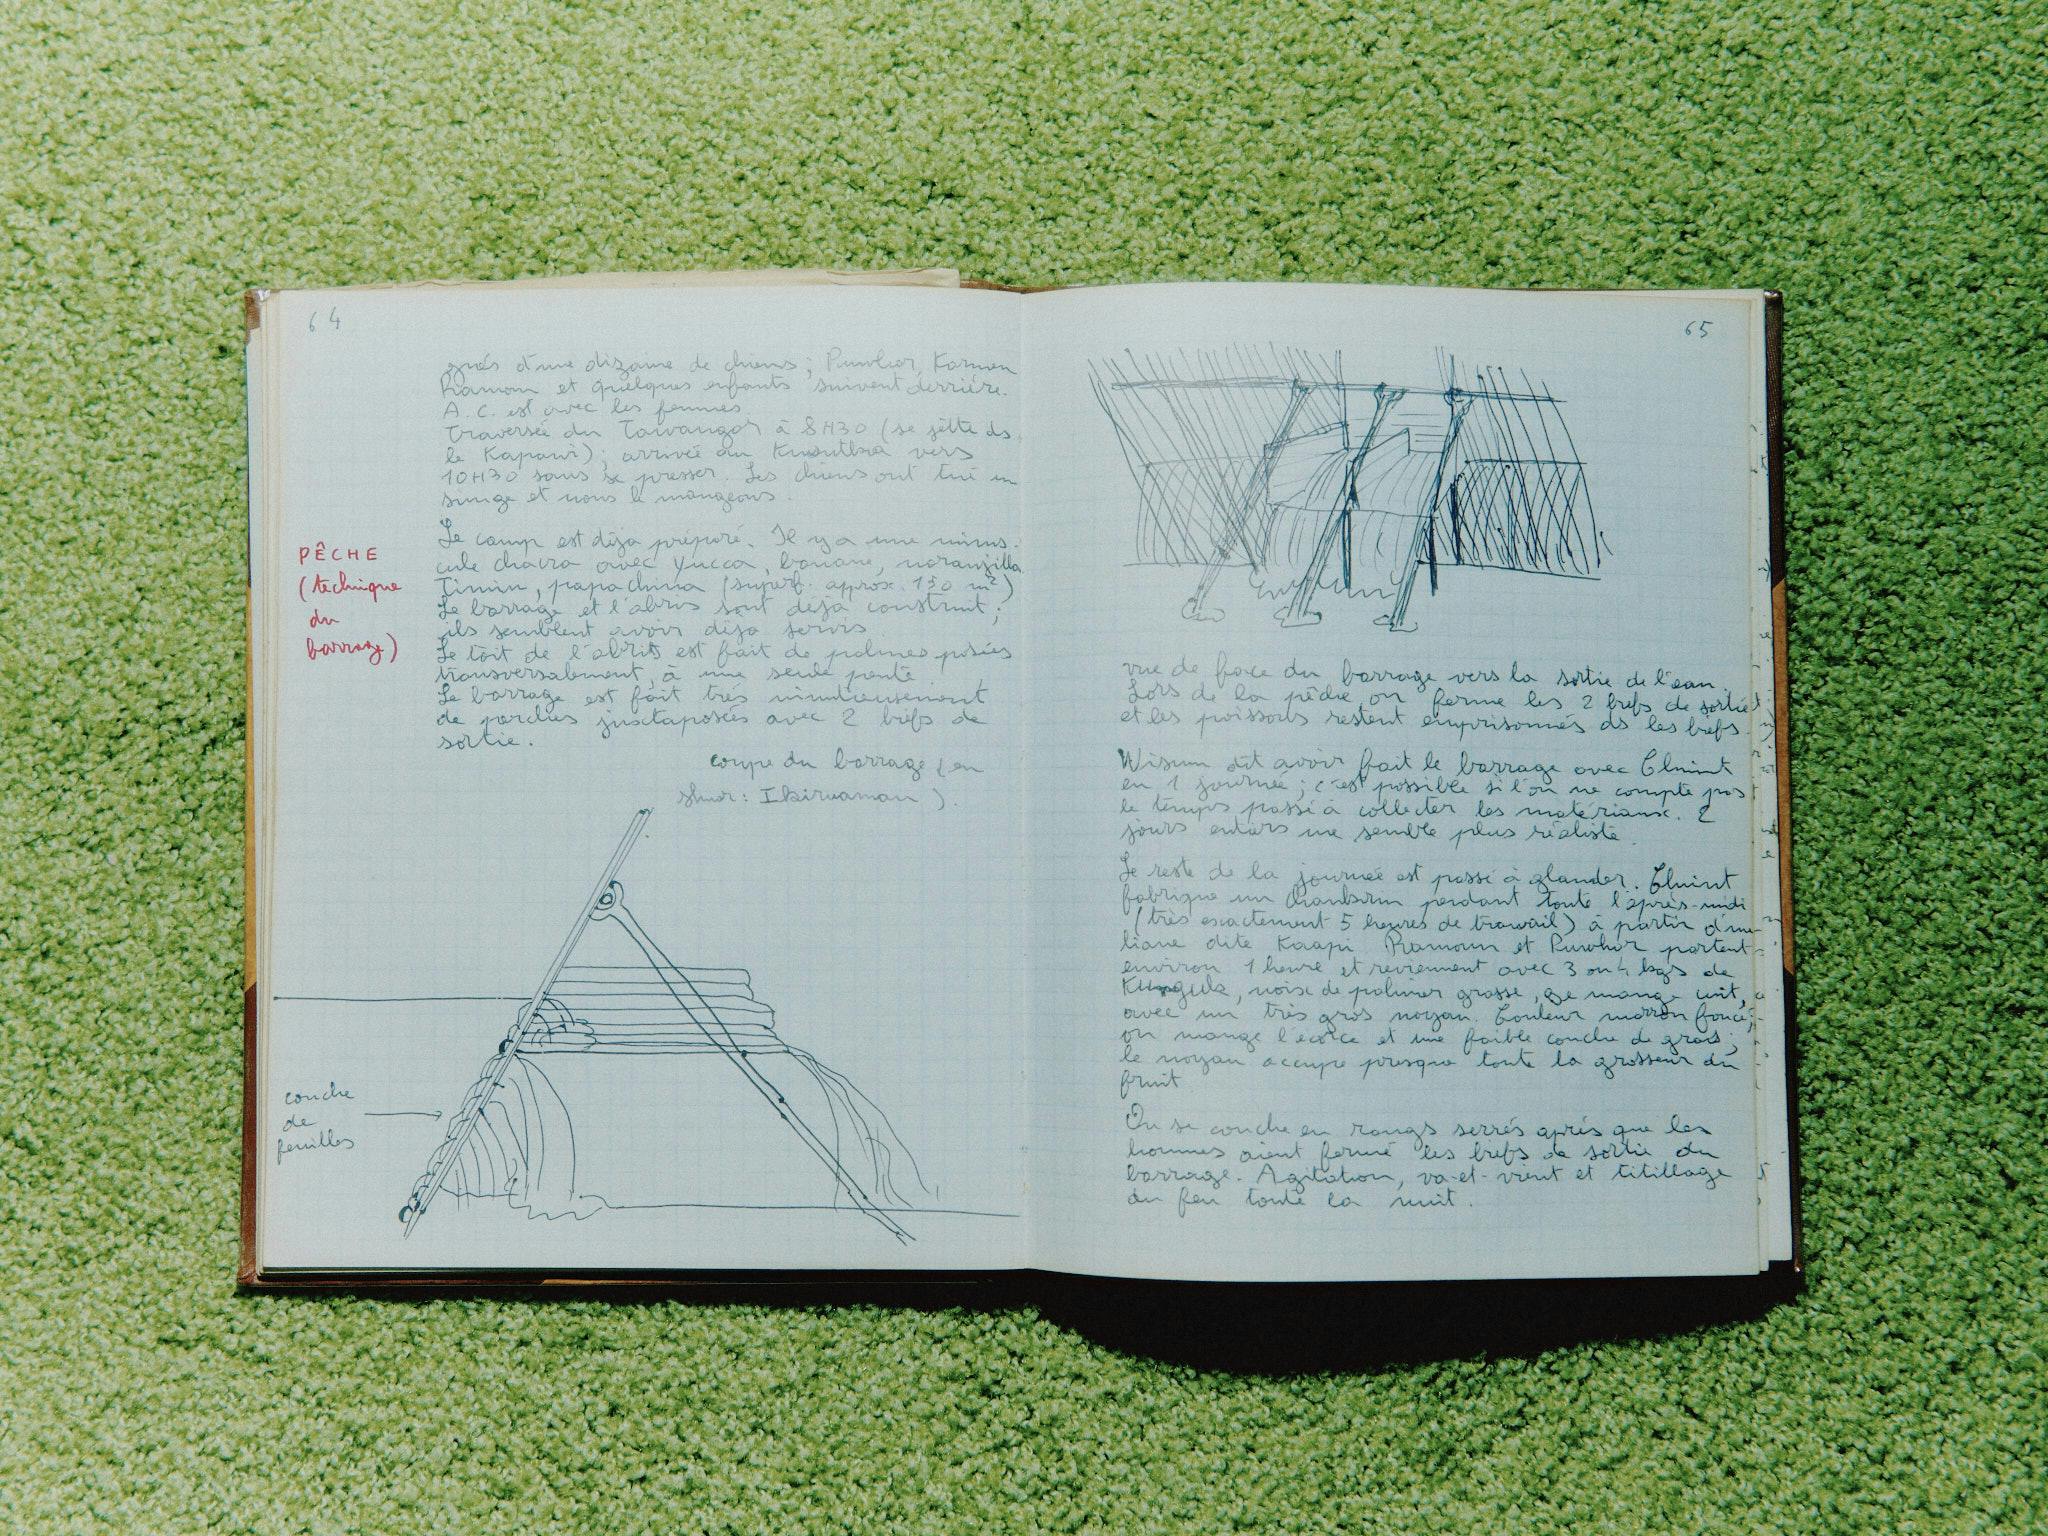 64
gnés d'une dizaine de chiens; Puwhar, Karmen
Ramon et quelques enfants suivent derrière.
A.C. est avec les femmes
Traversée du Tawangar à 8H30 (se jette ds
le Kapawi); arrivée au vers
10H30 sans se presser. Les chiens ont tué un
singe et nous le mangeons.
PÊCHE
(technique
du
barrage)
Le camp est déja préparé. Il y a une minus-
cule chacra avec Yucca, banane, naranjilla
Timiu, papachina (superf. approx. 150 m²)
Le barrage et l'abris sont déja construit;
ils semblent avoir déja servis
Le toit de l'abris est fait de palmes posées
transversalement, à une seule pente
Le barrage est fait très minutieusement
de perches juxtaposées avec 2 biefs de
sortie.
coupe du barrage (en
shuar: ).
couche
de
feuilles
65
vue de face du barrage vers la sortie de l'eau
Lors de la pêche on ferme les 2 biefs de sortie
et les poissons restent emprisonnés ds les biefs.
Wisum dit avoir fait le barrage avec Chuint
en 1 journée; c'est possible si l'on ne compte pas
le temps passé à collecter les matériaux. 2
jours entiers me semble plus réaliste.
Le reste de la journée est passé à glander. Chuint
fabrique un pendant toute l'après-midi
(très exactement 5 heures de travail) à partir d'une
liane dite Kaapi Ramoun et Puwhar partent
environ 1 heure et reviennent avec 3 ou 4 kgs de
noix de palmier grasse, se mange cuit,
avec un très gros noyau. Couleur marron foncé;
on mange l'écorce et une faible couche de gras;
le noyau occupe presque toute la grosseur du
fruit
On se couche en rangs serrés après que les
hommes aient fermé les biefs de sortie du
barrage. Agitation, va-et-vient et titillage
du feu toute la nuit.